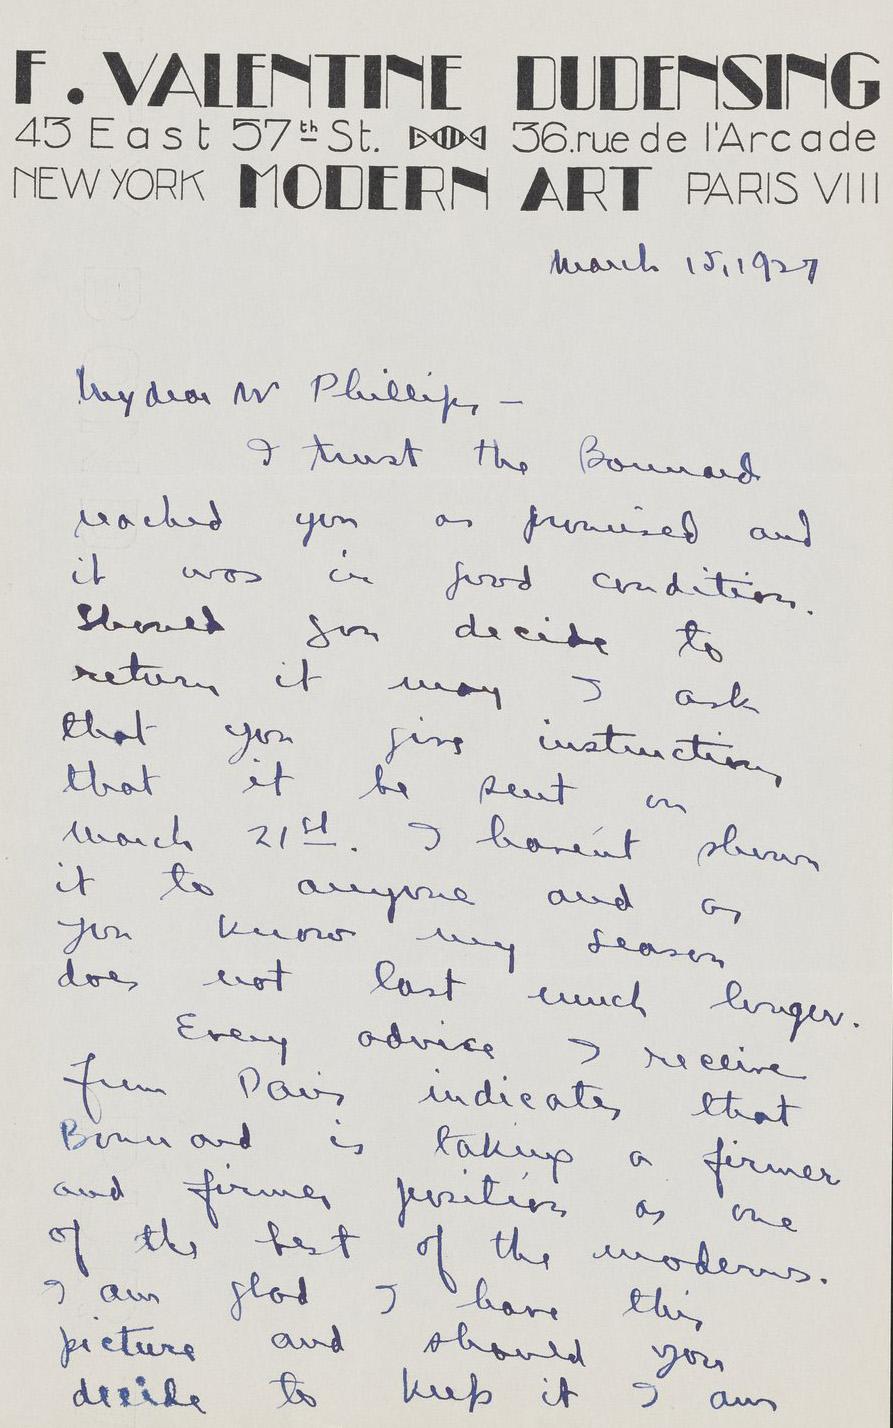 F. VALENTINE DUDENSING
43 East 57th St. 36.rue de l'Arcade
NEW YORK MODERN ART PARIS VIII
March 15, 1927
My dear Mr Phillips –
I trust the Bonnard
reached you as promised and
it was in good condition.
Should you decide to
return it may I ask
that you give instructions
that it be sent on
March 21st. I haven't shown
it to anyone and as
you know my season
does not last much longer.
Every advice I receive
from Paris indicates that
Bonnard is taking a firmer
and firmer position as one
of the best of the moderns.
I am glad I have this
picture and should you
decide to keep it I am